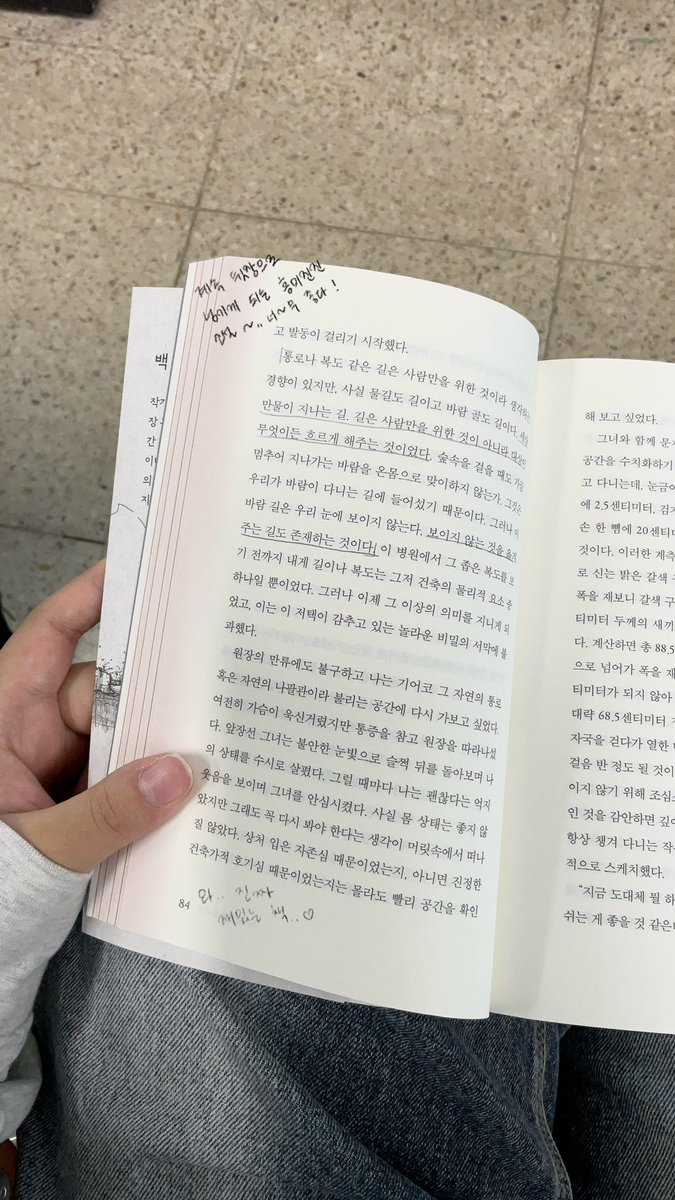 계속 뒷장으로
넘기게 되는 흥미진진
소설 ~,, 너~무 좋다!
백
작가
장
간
이
의
지
고 발동이 걸리기 시작했다.
통로나 복도 같은 길은 사람만을 위한 것이라 생각하는
경향이 있지만, 사실 물길도 길이고 바람 골도 길이다.
만물이 지나는 길. 길은 사람만을 위한 것이 아니라 대상이
무엇이든 흐르게 해주는 것이었다. 숲속을 걸을 때도 가끔
멈추어 지나가는 바람을 온몸으로 맞이하지 않는가. 그것은
우리가 바람이 다니는 길에 들어섰기 때문이다. 그러나 이
바람 길은 우리 눈에 보이지 않는다. 보이지 않는 것을 옮겨
주는 길도 존재하는 것이다. 이 병원에서 그 좁은 복도를 보
기 전까지 내게 길이나 복도는 그저 건축의 물리적 요소 중
하나일 뿐이었다. 그러나 이제 그 이상의 의미를 지니게 되
었고, 이는 이 저택이 감추고 있는 놀라운 비밀의 서막에 불
과했다.
원장의 만류에도 불구하고 나는 기어코 그 자연의 통로
혹은 자연의 나팔관이라 불리는 공간에 다시 가보고 싶었다.
여전히 가슴이 욱신거렸지만 통증을 참고 원장을 따라나섰
다. 앞장선 그녀는 불안한 눈빛으로 슬쩍 뒤를 돌아보며 나
의 상태를 수시로 살폈다. 그럴 때마다 나는 괜찮다는 억지
웃음을 보이며 그녀를 안심시켰다. 사실 몸 상태는 좋지 않
았지만 그래도 꼭 다시 봐야 한다는 생각이 머릿속에서 떠나
질 않았다. 상처 입은 자존심 때문이었는지, 아니면 진정한
건축가적 호기심 때문이었는지는 몰라도 빨리 공간을 확인
84
와.. 진짜
재밌는 책..♡
해 보고 싶었다.
그녀와 함께 문
공간을 수치화하기
고 다니는데, 눈금이
에 2.5센티미터, 검
손 한 뼘에 20센티
것이다. 이러한 계측
로 신는 밝은 갈색
폭을 재보니 갈색 구
티미터 두께의 새끼
다. 계산하면 총 88.5
으로 넘어가 폭을 재
티미터가 되지 않아
대략 68.5센티미터
자국을 걷다가 열한
걸음 반 정도 될 것이
이지 않기 위해 조심
인 것을 감안하면 깊이
항상 챙겨 다니는 작
적으로 스케치했다.
“지금 도대체 뭘 하
쉬는 게 좋을 것 같은